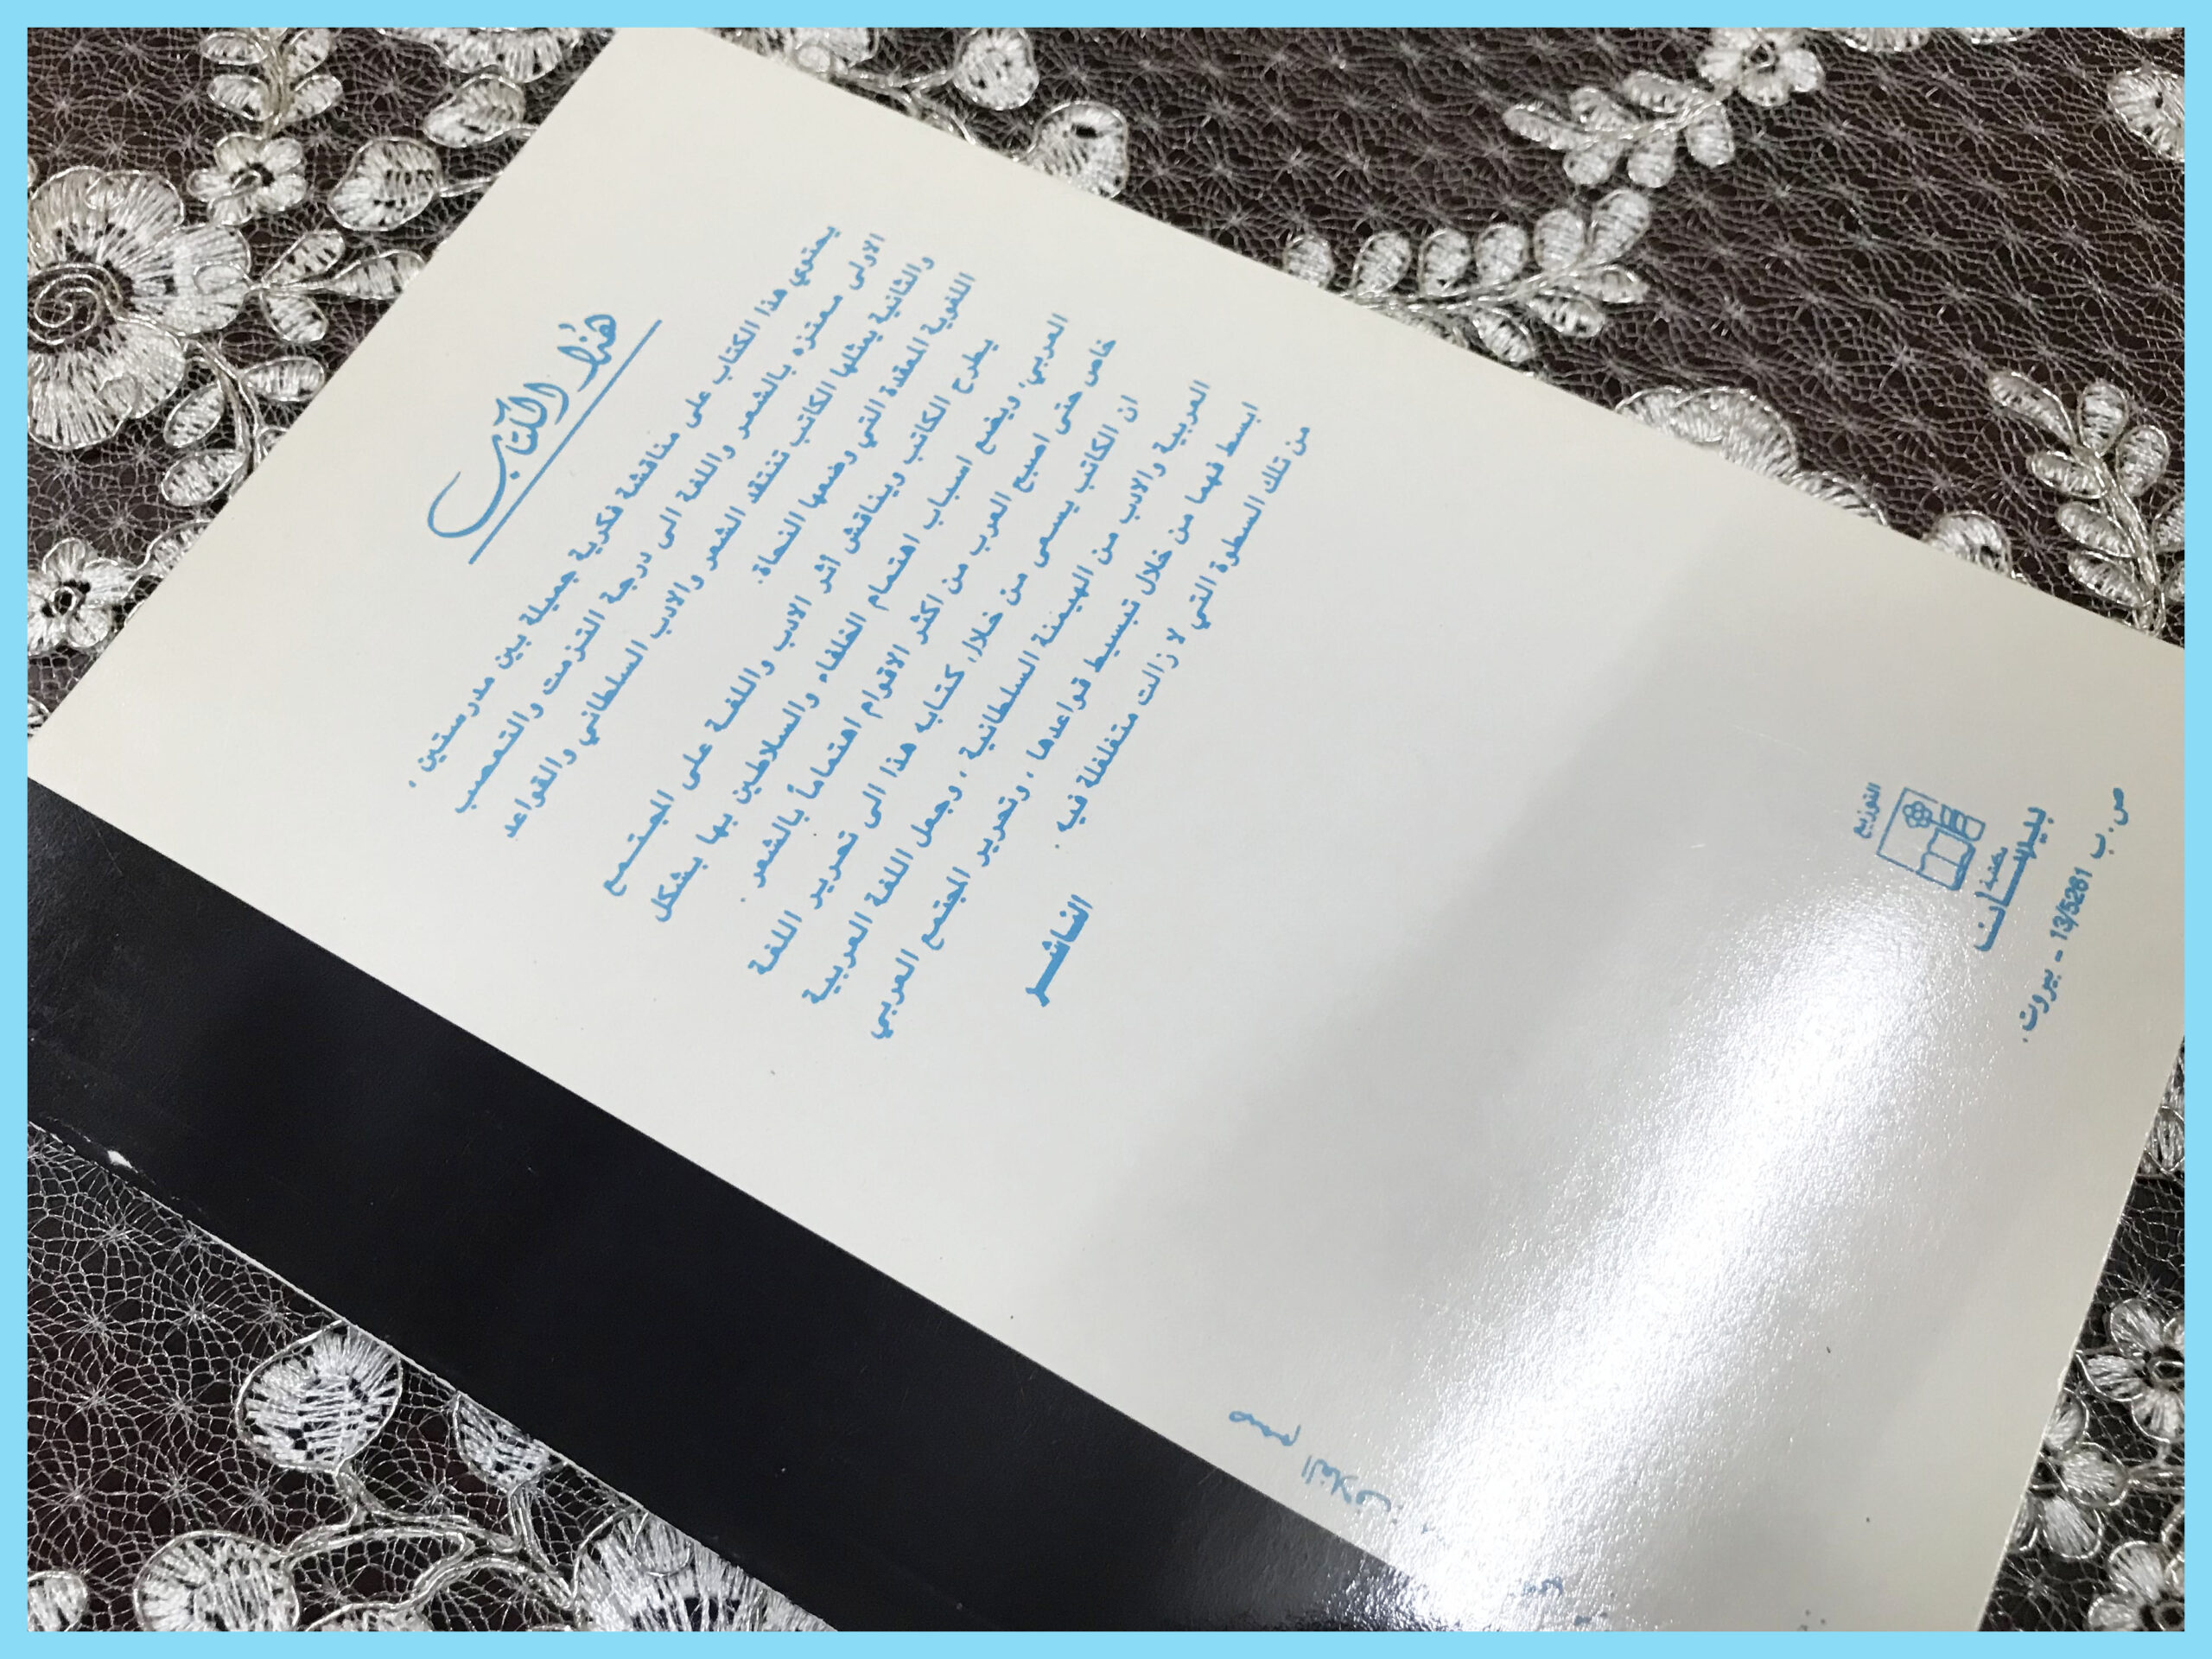 هذا الكتاب
يحتوي هذا الكتاب على مناقشة فكرية جميلة بين مدرستين.
الاولى معتزه بالشعر واللغة الى درجة التزمت والتعصب
والثانية يمثلها الكاتب تنتقد الشعر والادب السلطاني والقواعد
اللغوية المعقدة التي وضعها النحاة.
يطرح الكاتب ويناقش أثر الادب واللغة على المجتمع
العربي، ويضع اسباب اهتمام الخلفاء والسلاطين بها بشكل
خاص حتى اصبح العرب من اكثر الاقوام اهتماماً بالشعر.
ان الكاتب يسعى من خلال كتابه هذا الى تحرير اللغة
العربية والادب من الهيمنة السلطانية، وجعل اللغة العربية
ابسط فهما من خلال تبسيط قواعدها، وتحرير المجتمع العربي
من تلك السطوة التي لا زالت متغلغلة فيه.
الناشر
التوزيع
مكتبة
بيليسان
ص.ب 13/5261 - بيروت.
صمم الغلاف